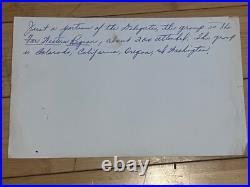 Just a portions of the Delegates, the group in the
Far Western Region, about 200 attended. The group
is Colorado, California, Oregon, & Washington